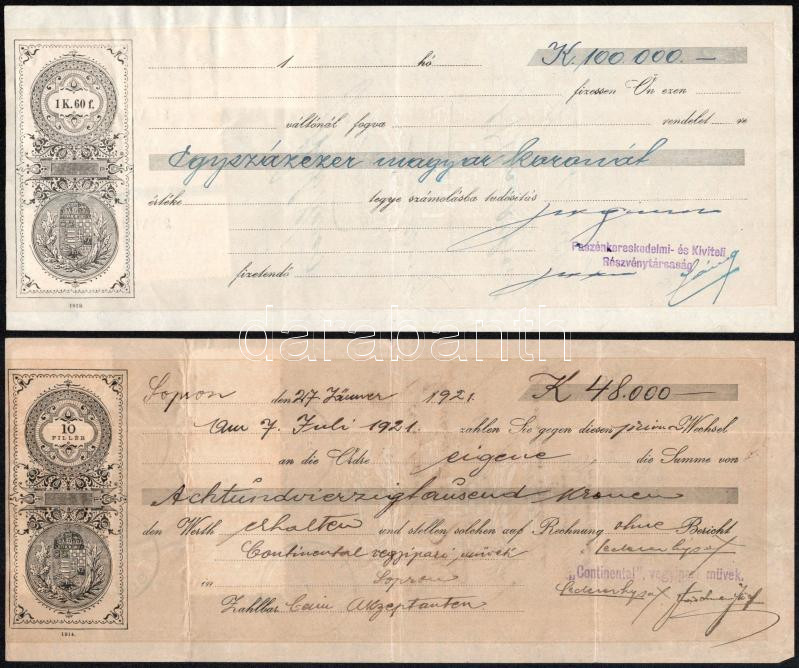 K. 100.000.—
1 K. 60 f.
1 hó
fizessen Ön ezen
váltónál fogva rendelet re
Egyszázezer magyar koronát
értéke tegye számolásba tudósitás
Faszénkereskedelmi- és Kiviteli
Részvénytársaság
fizetendő
darabanth
Sopron den 27 Jänner 1921. K 48.000—
Am 7. Juli 1921. zahlen Sie gegen diesen prima Wechsel
10
FILLÉR
an die Ordre eigene, die Summe von
Achtundvierzigtausend Kronen
den Werth erhalten und stellen solchen auf Rechnung ohne Bericht
Continental vegyipari müvek
in Sopron
„Continental", vegyipari müvek.
Zahlbar beim Akzeptanten
1914.